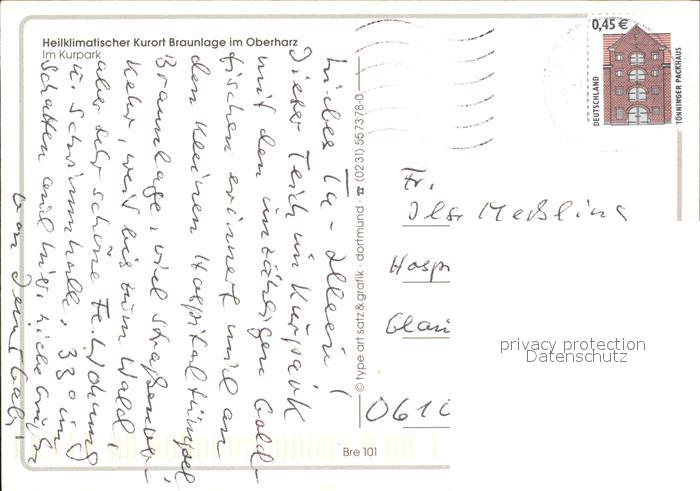 Heilklimatischer Kurort Braunlage im Oberharz
Im Kurpark
Liebes Ta-
Dieser Teich im Kurpark
mit den unzähligen Gold-
fischen erinnert mich an
den kleinen Hospitaltümpel
Braunlage, viel Straßenver-
kehr, weit bis zum Wald,
aber sehr schöne Fe.Wohnung
u. Schwimmhalle. 33° im
Schatten auch hier. Liebe Grüße
von Deiner Gabi
© type art satz & grafik · dortmund · ☎ (0231) 557378-0
0,45 €
DEUTSCHLAND
TÖNNINGER PACKHAUS
Fr.
Ilse Meßling
Hosp
Glau
0610
privacy protection
Datenschutz
Bre 101